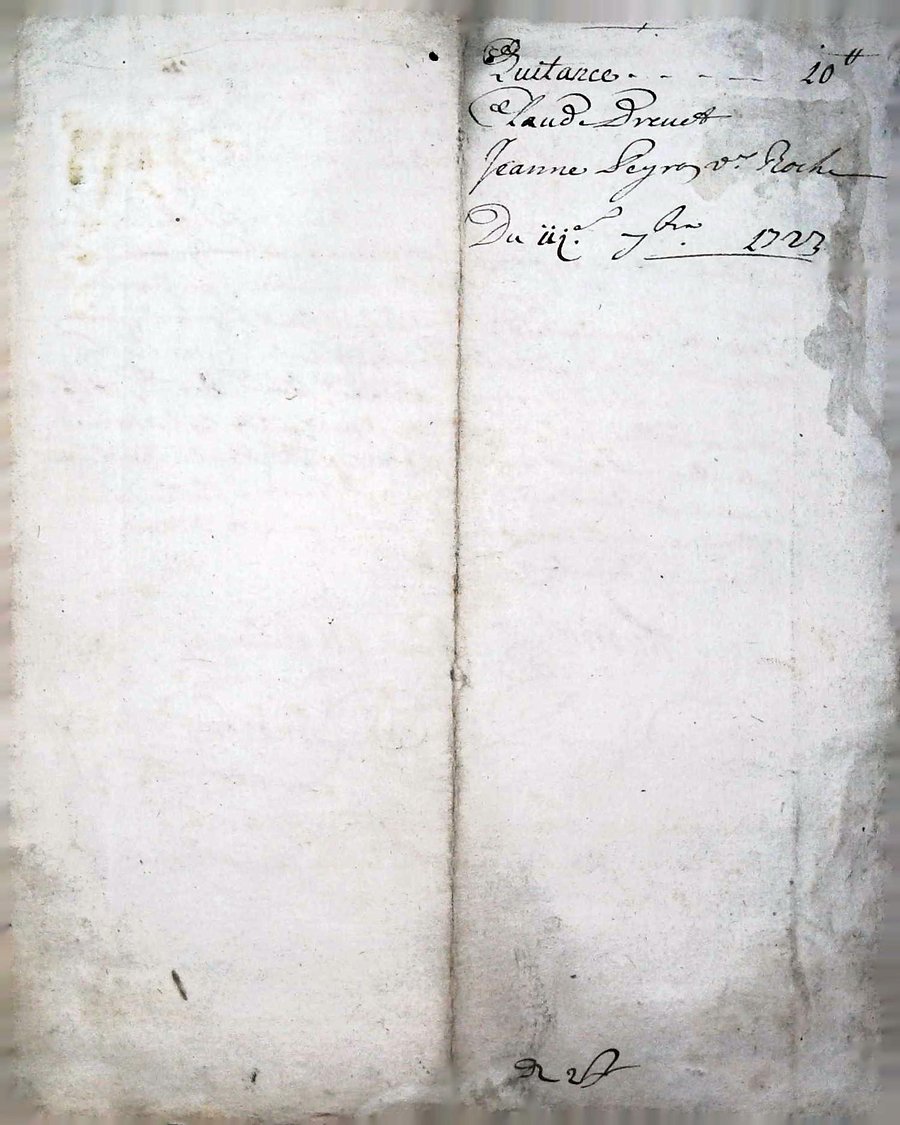 Quitance - - - - 10tt
Claude Drevet
Jeanne Peyro vve Roche
Du iij.e 7bre 1723